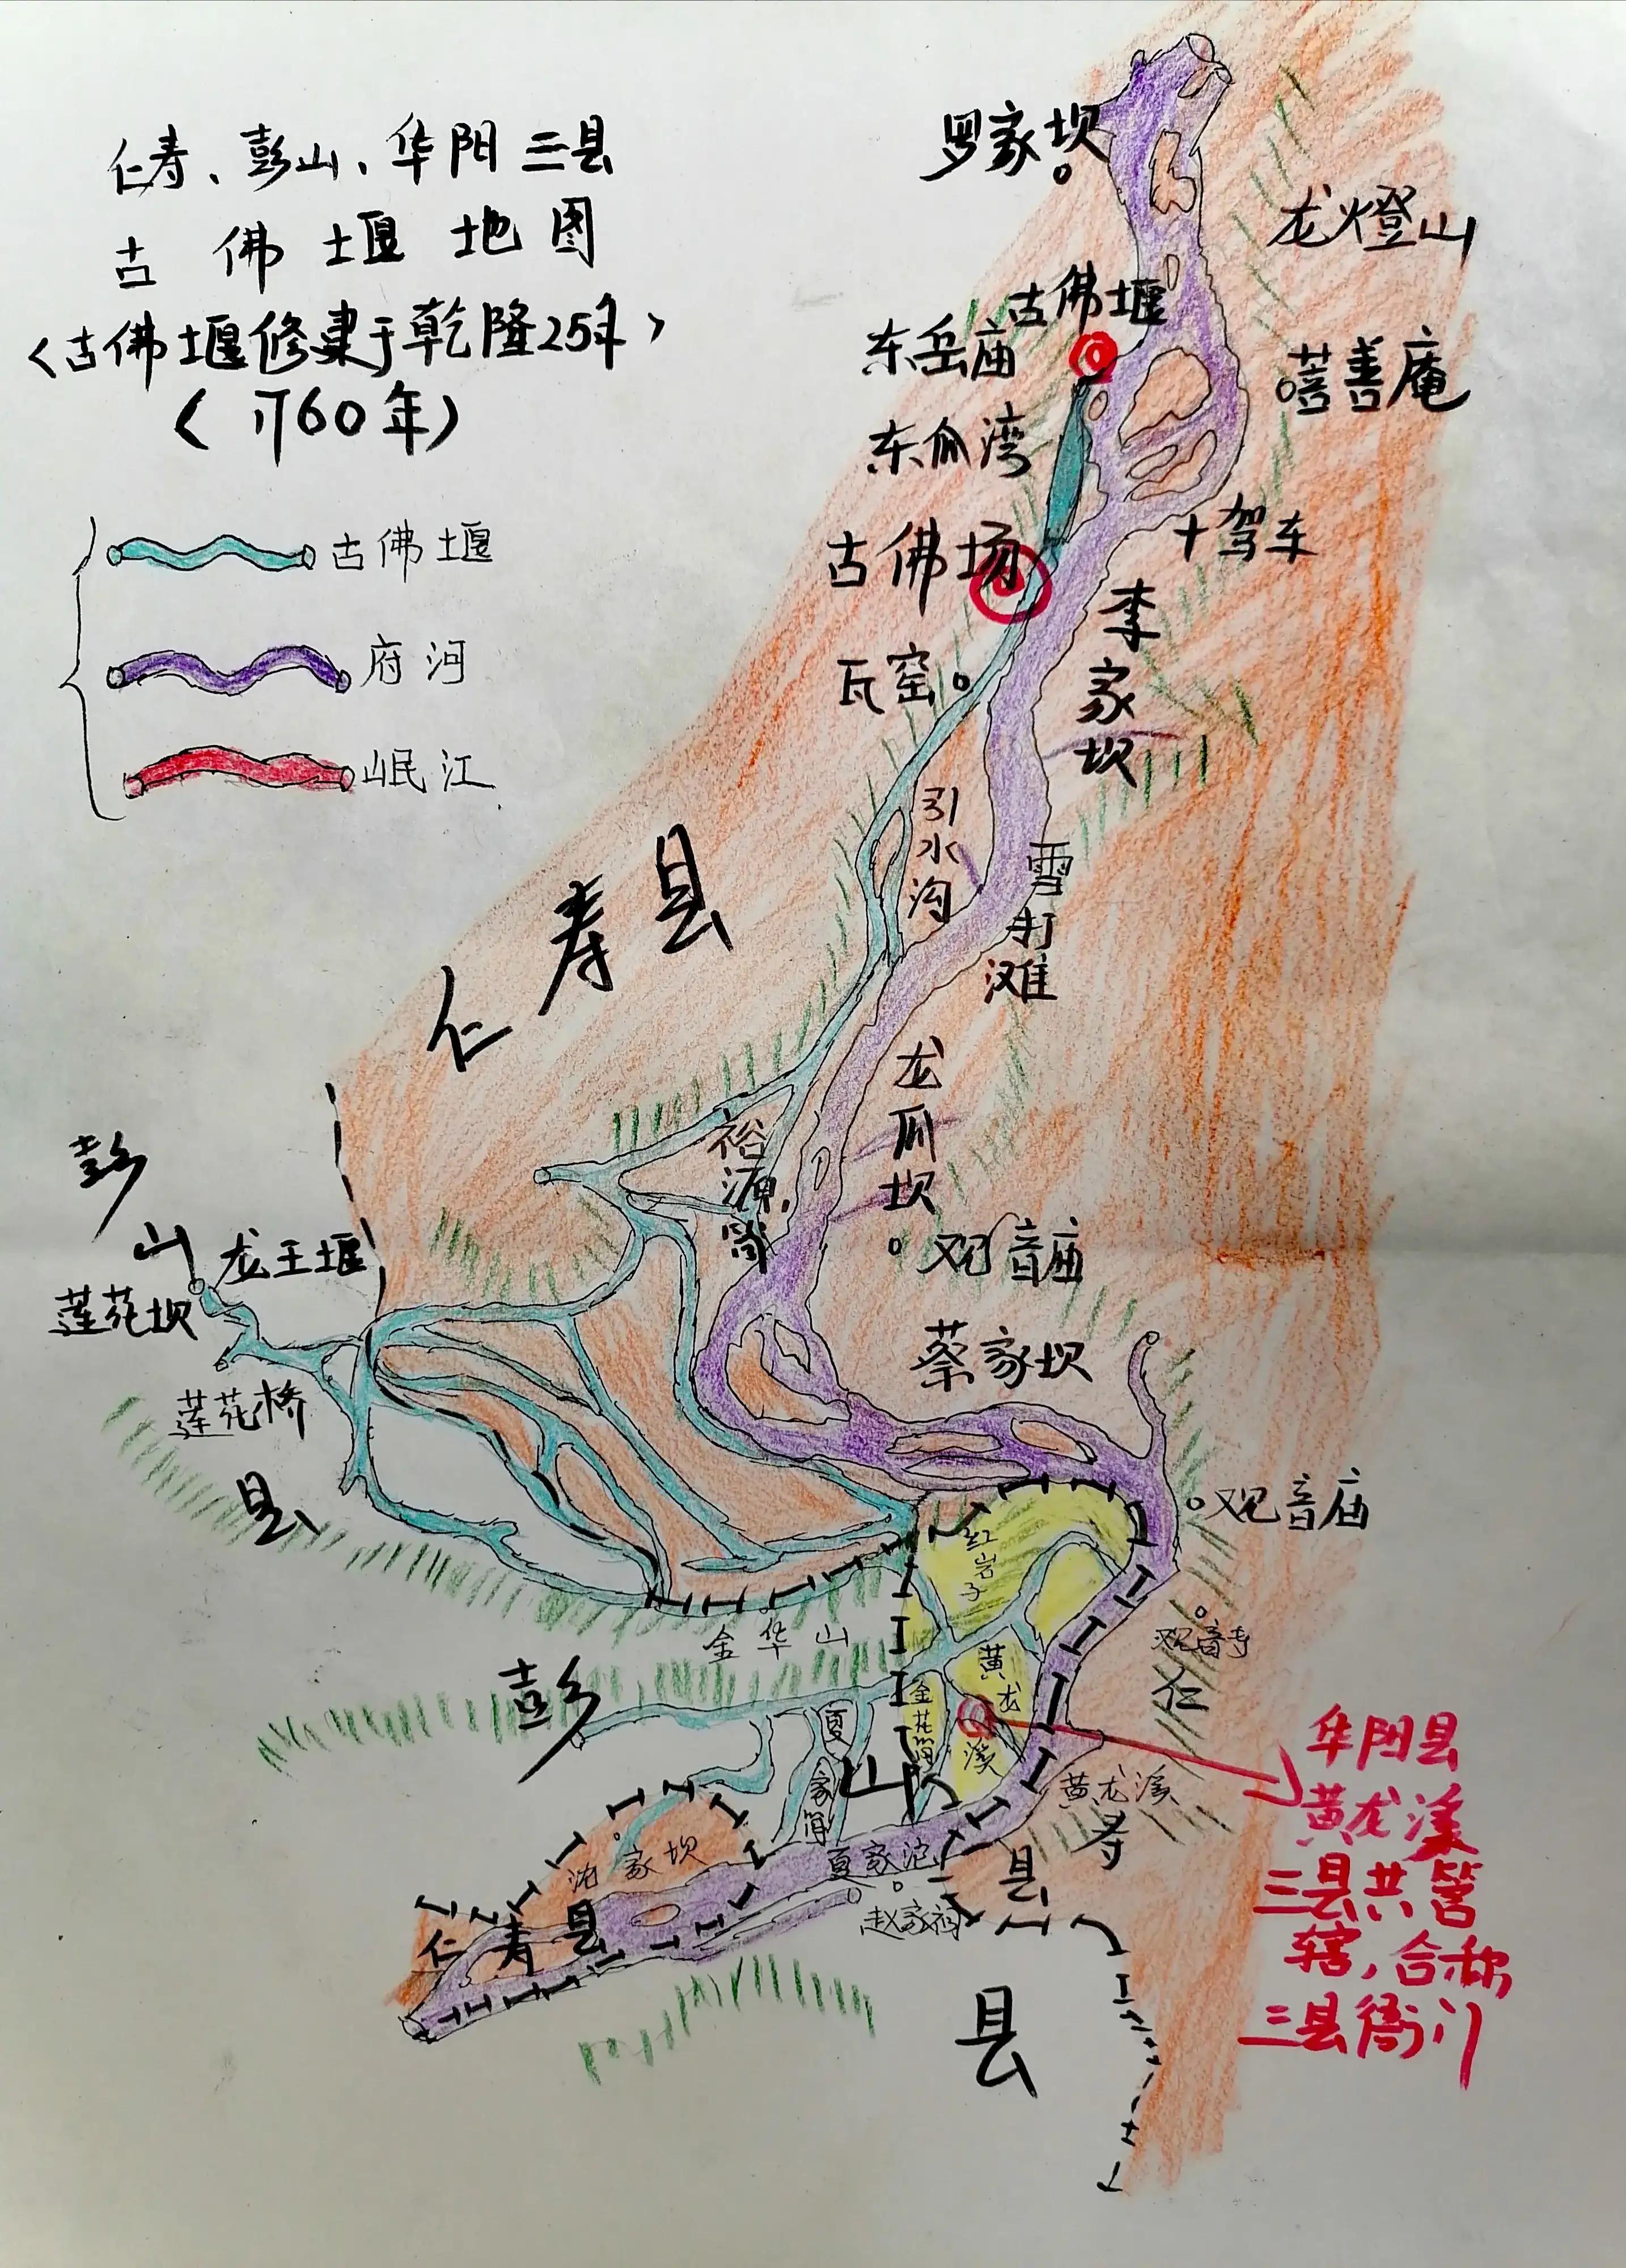 仁寿、彭山、华阳三县
古佛堰地图
〈古佛堰修建于乾隆25年〉
古佛堰
府河
岷江
罗家坝
龙燈山
古佛堰
东岳庙
善庵
东瓜湾
古佛场
十驾车
瓦窑
李家坝
引水沟
雪打滩
仁寿县
龙爪坝
裕源筒
彭山
龙王堰
莲花坝
莲花桥
县
观音庙
蔡家坝
观音庙
红岩子
金华山
观音寺
彭山
黄龙溪
金花筒
夏家筒
仁寿县
黄龙溪
沈家坝
夏家沱
赵家祠
仁寿县
县
华阳县
黄龙溪
三县共管
辖,合称
三县衙门